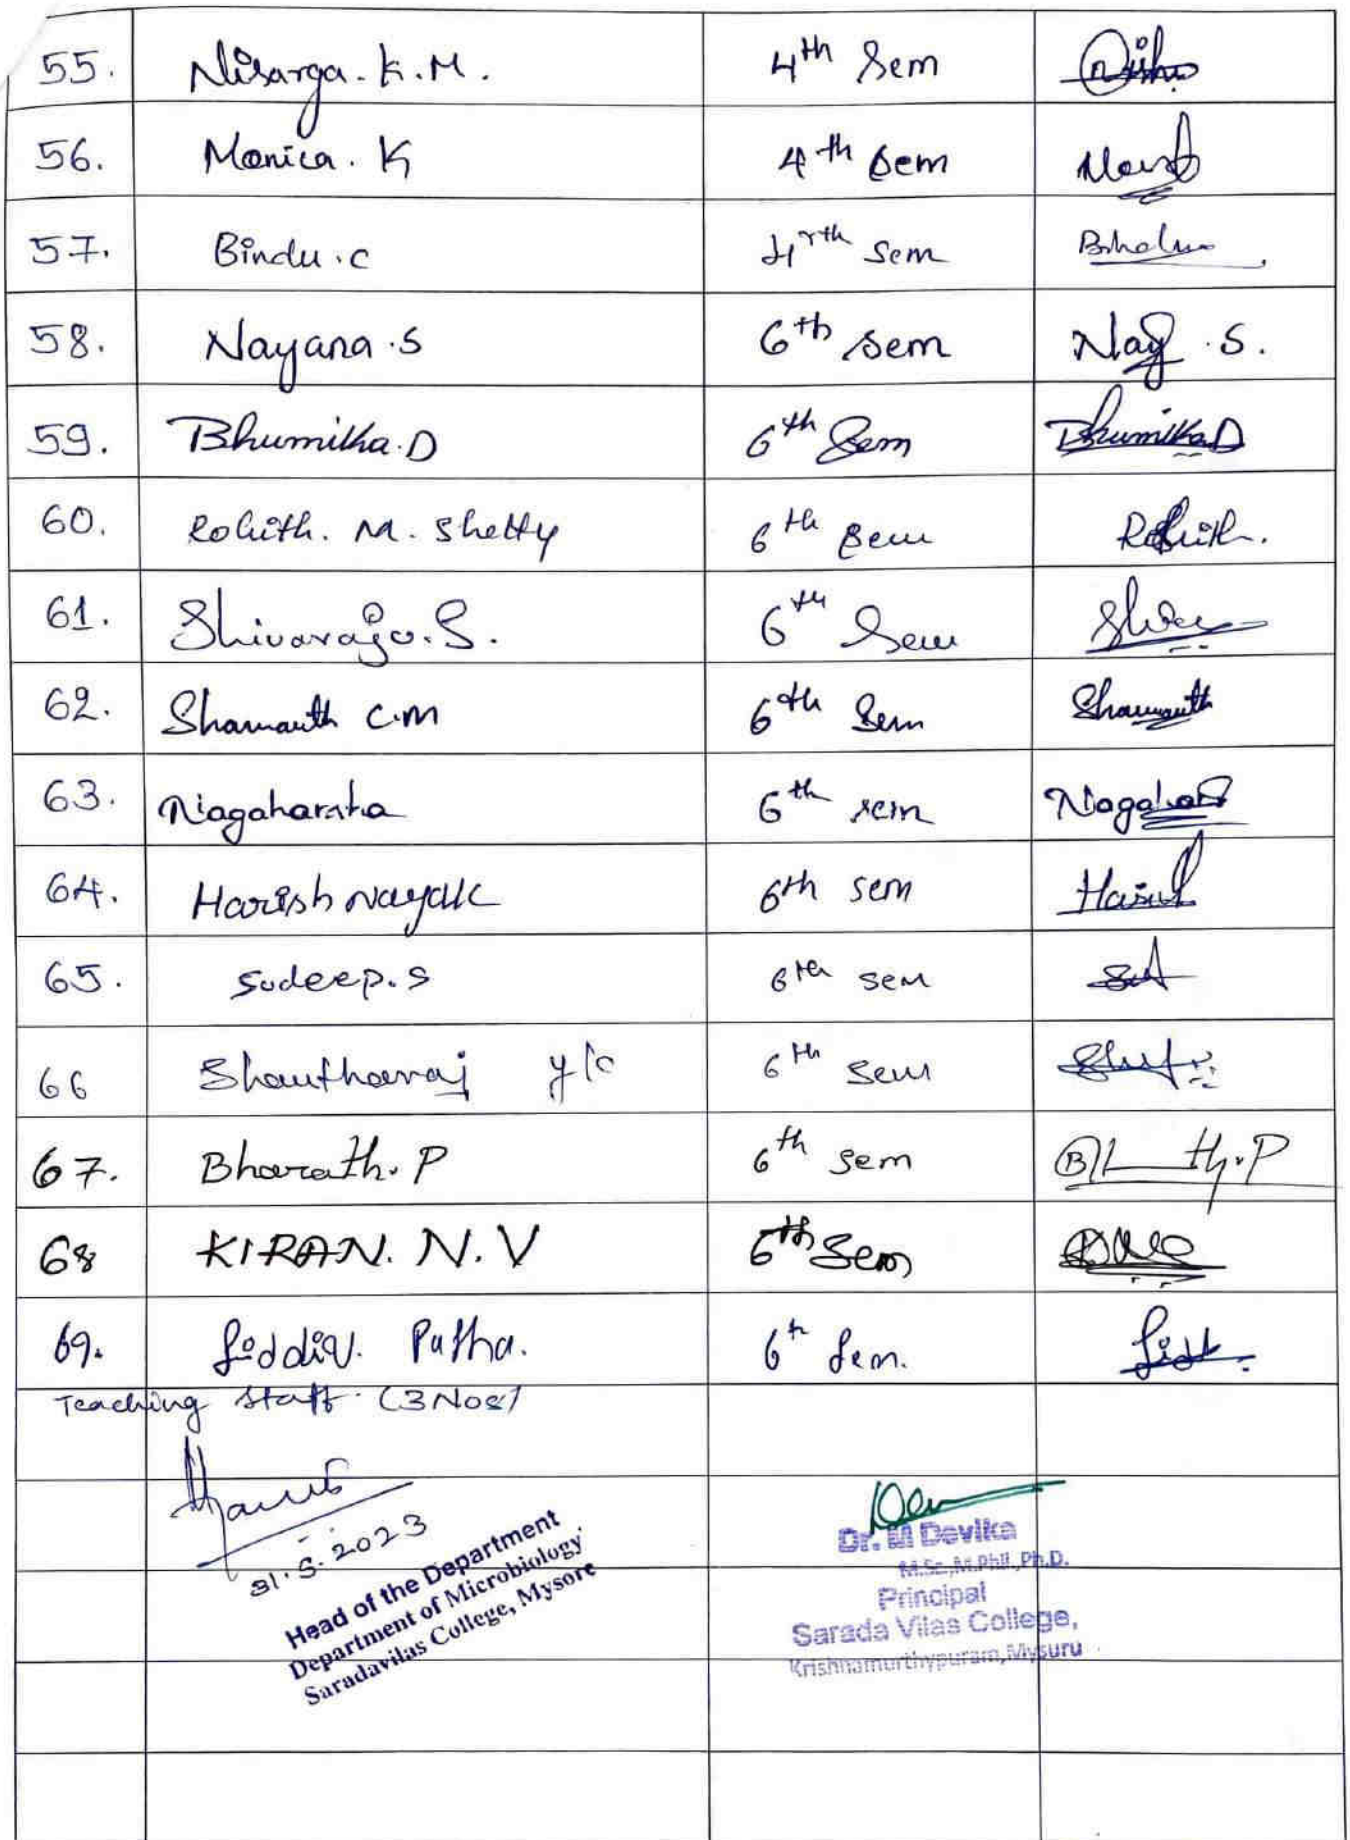 55. Nisarga. K.M. 4th Sem
56. Monica. K 4th Sem
57. Bindu.C 4rth Sem
58. Nayana.S 6th Sem Nay S.
59. Bhumika.D 6th Sem Bhumika D
60. Rohith. M. Shetty 6th Sem Rohith.
61. Shivaraju.S. 6th Sem
62. Shamanth C.M 6th Sem Shamanth
63. 6th sem
64. Harish Nayak 6th sem Harish
65. Sudeep.S 6th sem
66 6th Sem
67. Bharath.P 6th sem
68 KIRAN. N.V 6th Sem
69. 6th Sem.
Teaching Staff (3Nos)
31.5.2023
Head of the Department
Department of Microbiology
Saradavilas College, Mysore
Dr. M Devika
M.Sc.,M.Phil.,Ph.D.
Principal
Sarada Vilas College,
Krishnamurthypuram,Mysuru